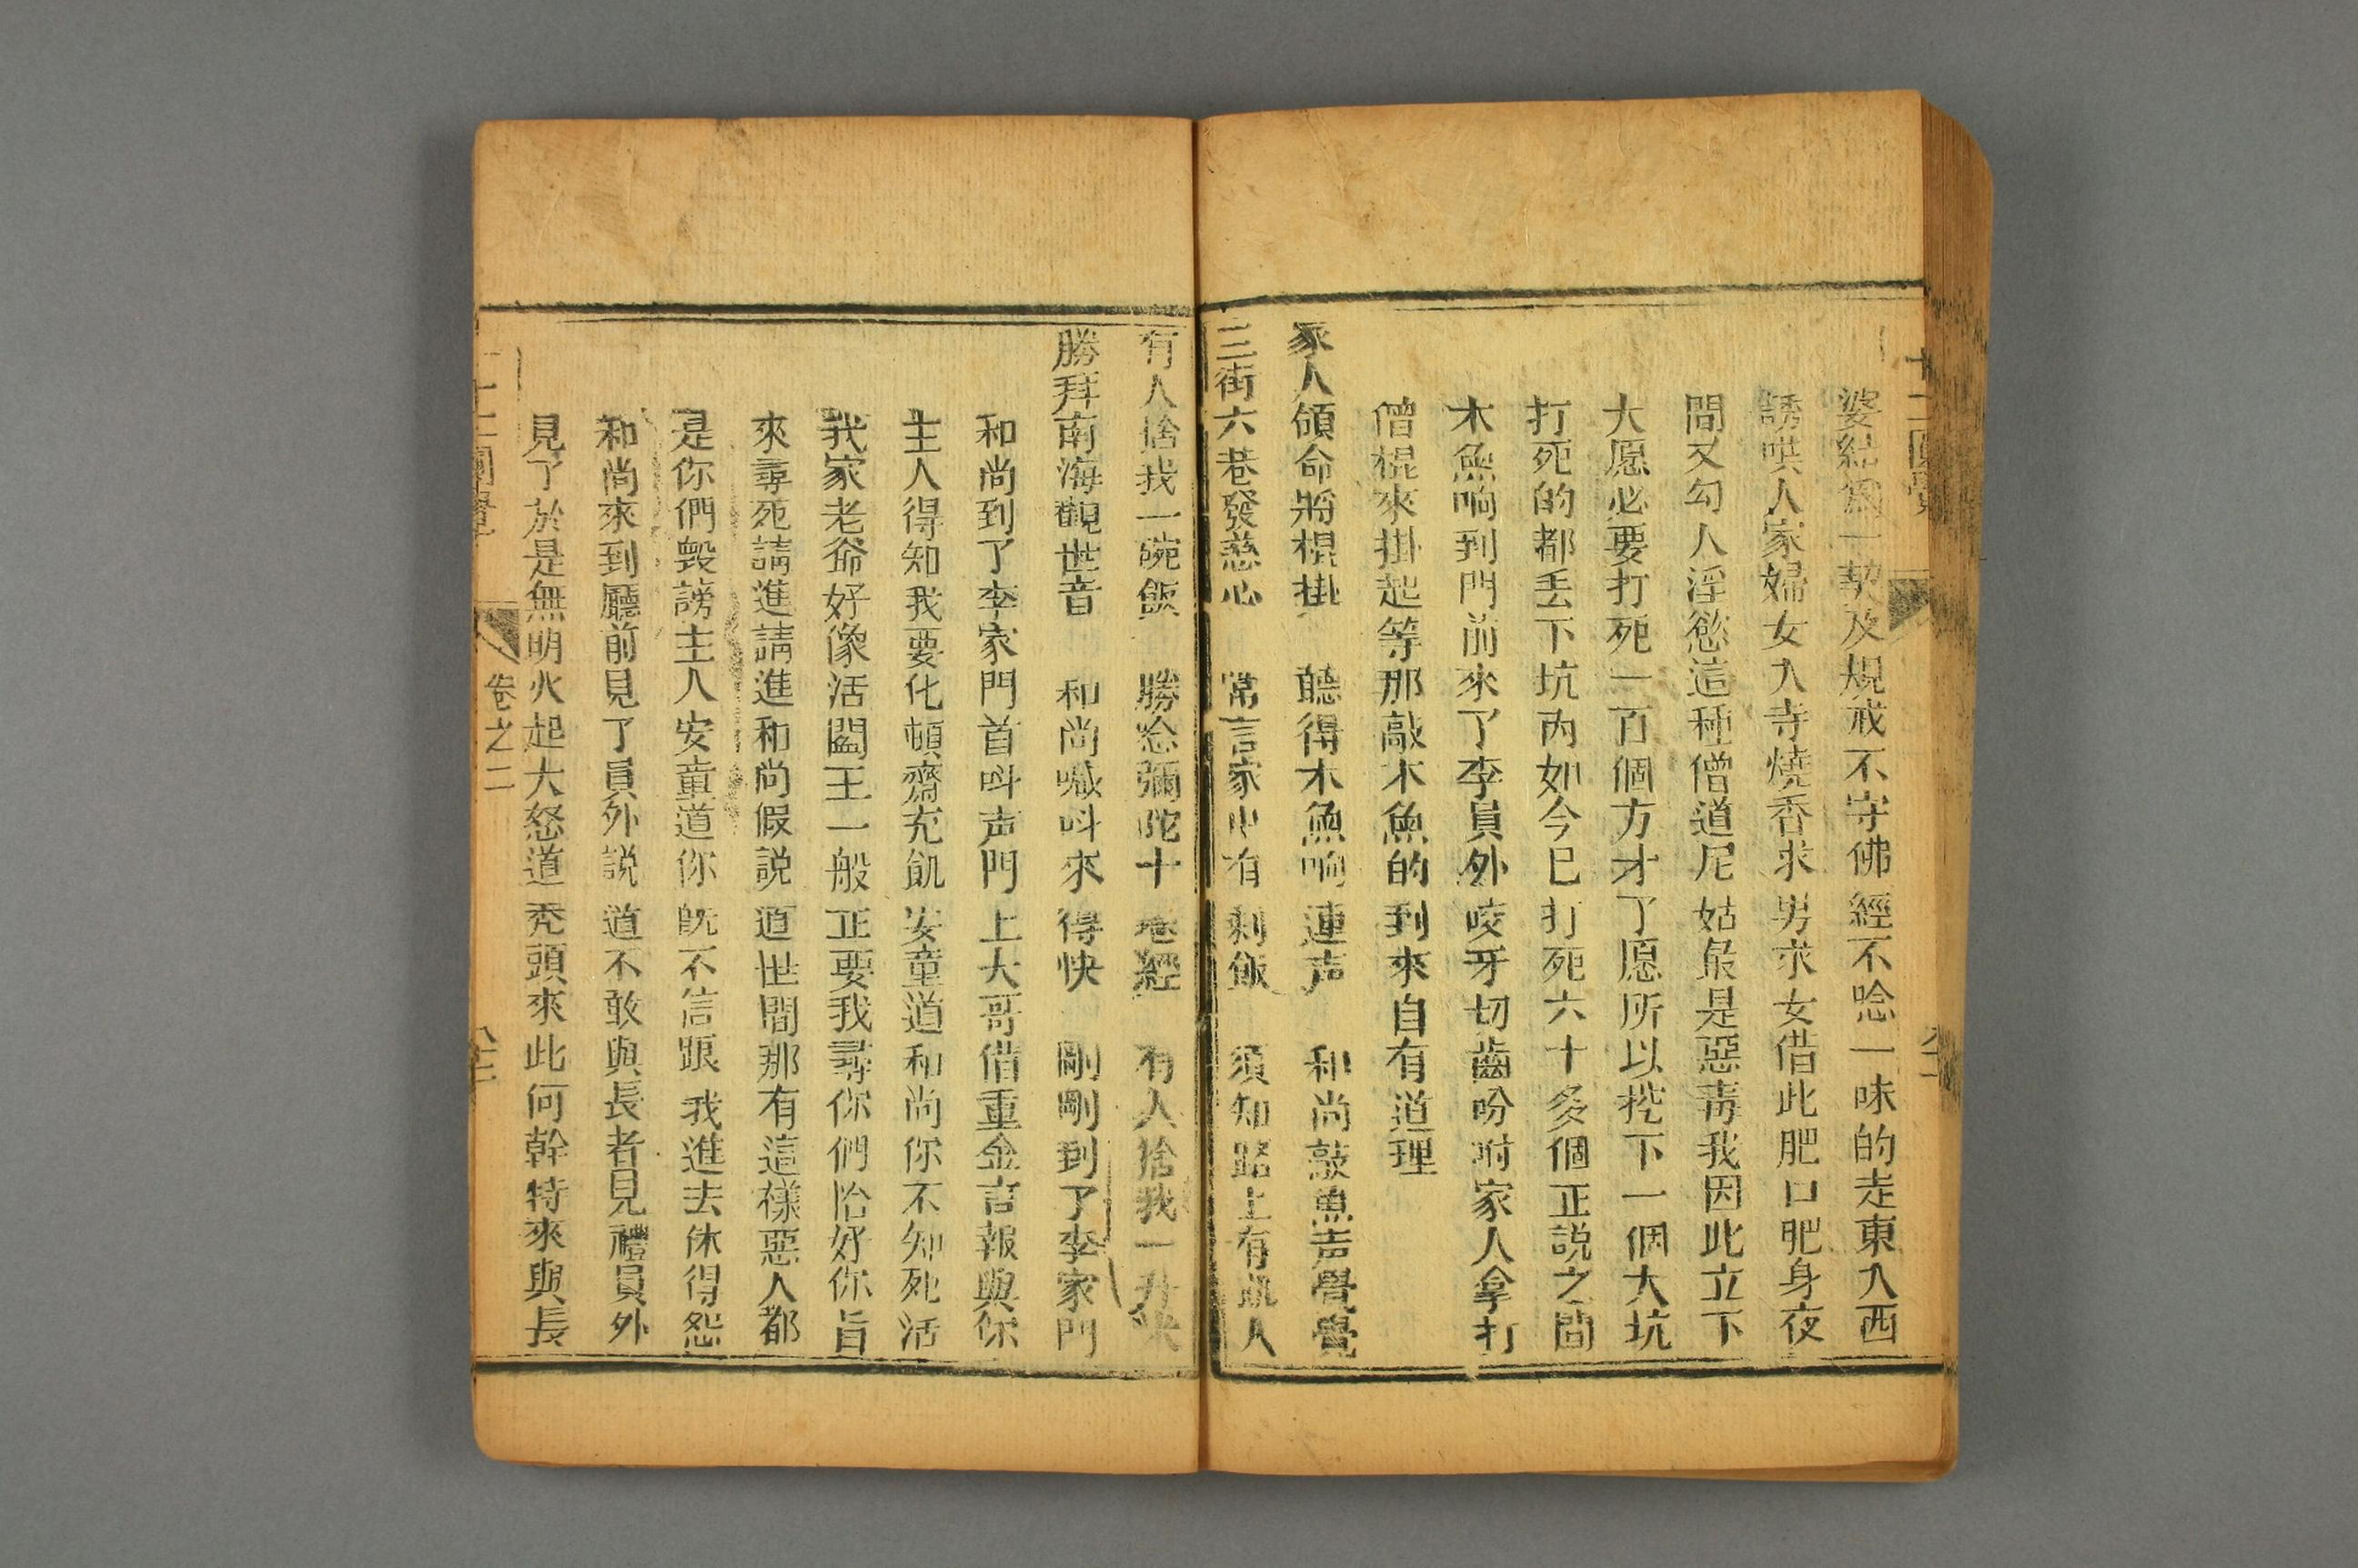 十二圓覺
婆結為一契及規戒不守佛經不唸一味的走東入西
誘哄人家婦女入寺燒香求男求女借此肥口肥身夜
間又勾人淫慾這種僧道尼姑最是惡毒我因此立下
大愿必要打死一百個方才了愿所以挖下一個大坑
打死的都丢下坑内如今已打死六十多個正説之間
木魚响到門前來了李員外咬牙切齒吩咐家人拿打
僧棍來掛起等那敲木魚的到來自有道理
家人領命將棍掛 聽得木魚响連声 和尚敲魚声覺覺
三街六巷發慈心 常言家中有剩飯 須知路上有飢人
有人捨我一碗飯 勝念彌陀十卷經 有人捨我一升米
勝拜南海觀世音 和尚喊呌來得快 剛剛到了李家門
和尚到了李家門首呌声門上大哥借重金言報與你
主人得知我要化頓齋充飢安童道和尚你不知死活
我家老爺好像活閻王一般正要我尋你們恰好你自
來尋死請進請進和尚假説道世間那有這樣惡人都
是你們毀謗主人安童道你既不信跟我進去休得怨
和尚來到廳前見了員外説道不敢與長者見禮員外
見了於是無明火起大怒道禿頭來此何幹特來與長
十二圓覺 卷之二